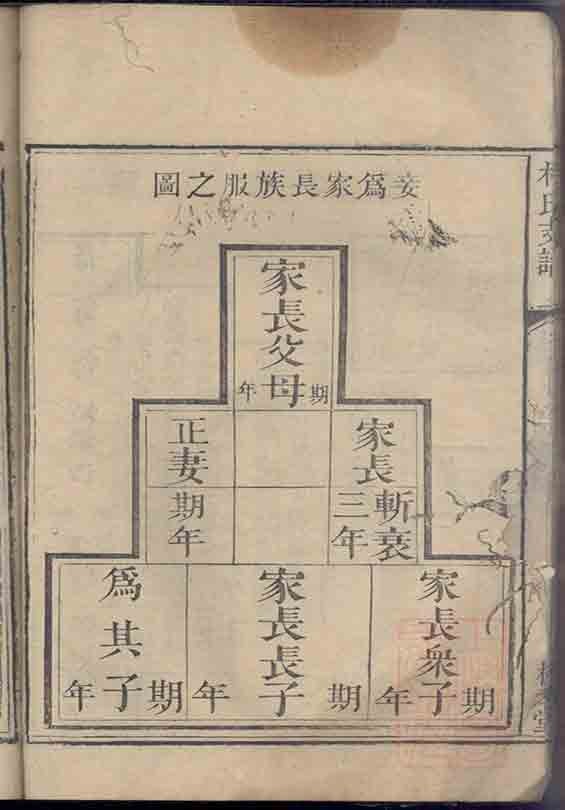 妾爲家長族服之圖
家長父母
期年
家長
斬衰三年
正妻
期年
家長衆子
期年
家長長子
期年
爲其子
期年